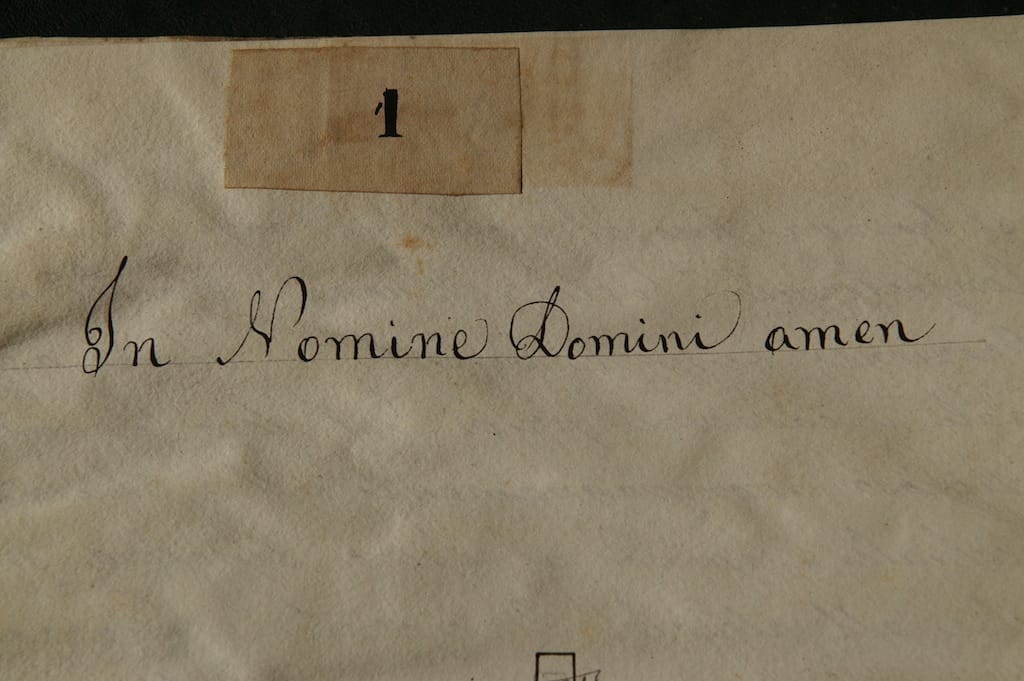 1
In Nomine Domini amen